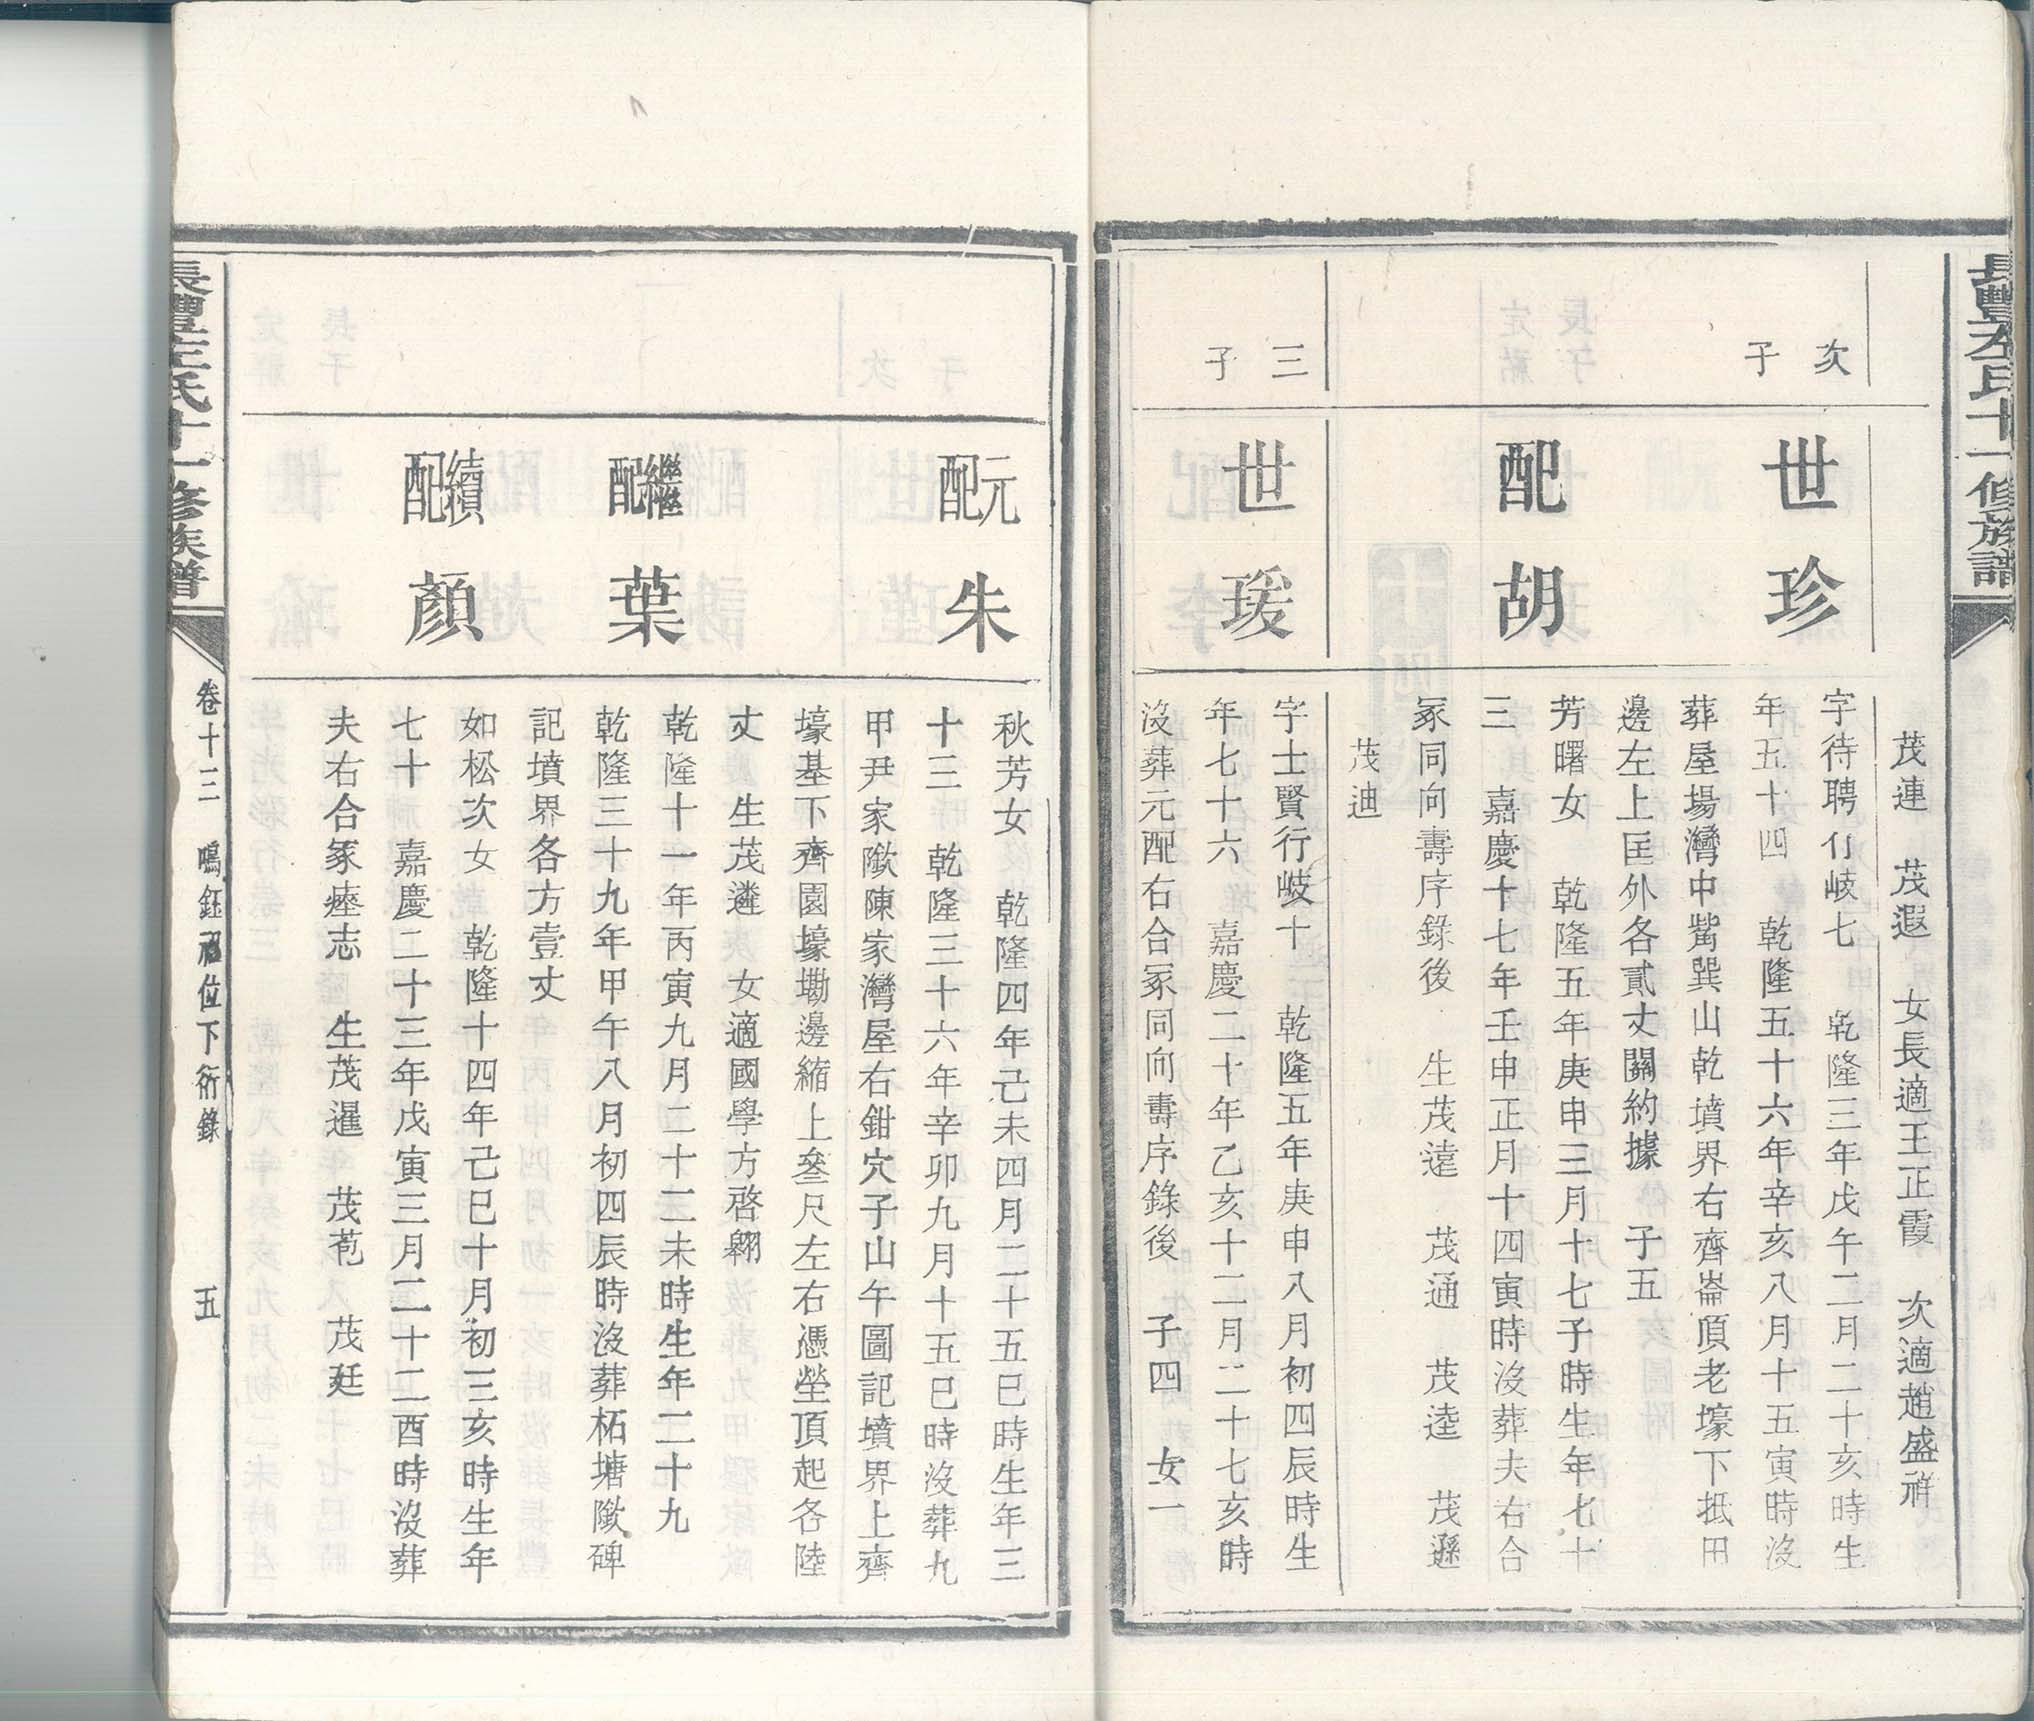 長豐左氏十一修族譜
茂連 茂遐 女長適王正霞 次適趙盛祥
次子
世珍
字待聘行岐七 乾隆三年戊午二月二十亥時生
年五十四 乾隆五十六年辛亥八月十五寅時沒
葬屋場灣中觜巽山乾墳界右齊崙頂老壕下抵田
邊左上匡外各貳丈關約據 子五
配胡
芳曙女 乾隆五年庚申三月十七子時生年七十
三 嘉慶十七年壬申正月十四寅時沒葬夫右合
冢同向壽序錄後 生茂遠 茂通 茂逵 茂遜
茂迪
三子
世瑗
字士賢行岐十 乾隆五年庚申八月初四辰時生
年七十六 嘉慶二十年乙亥十二月二十七亥時
沒葬元配右合冢同向壽序錄後 子四 女一
元配朱
秋芳女 乾隆四年己未四月二十五巳時生年三
十三 乾隆三十六年辛卯九月十五巳時沒葬九
甲尹家隞陳家灣屋右鉗穴子山午圖記墳界上齊
壕基下齊園壕墈邊縮上叄尺左右憑塋頂起各陸
丈 生茂遴 女適國學方啓翱
繼配葉
乾隆十一年丙寅九月二十二未時生年二十九
乾隆三十九年甲午八月初四辰時沒葬柘塘隞碑
記墳界各方壹丈
續配顏
如松次女 乾隆十四年己巳十月初三亥時生年
七十 嘉慶二十三年戊寅三月二十二酉時沒葬
夫右合冢瘞志 生茂暹 茂苞 茂廷
長豐左氏十一修族譜
卷十三 鳴鈺祖位下衍錄 五